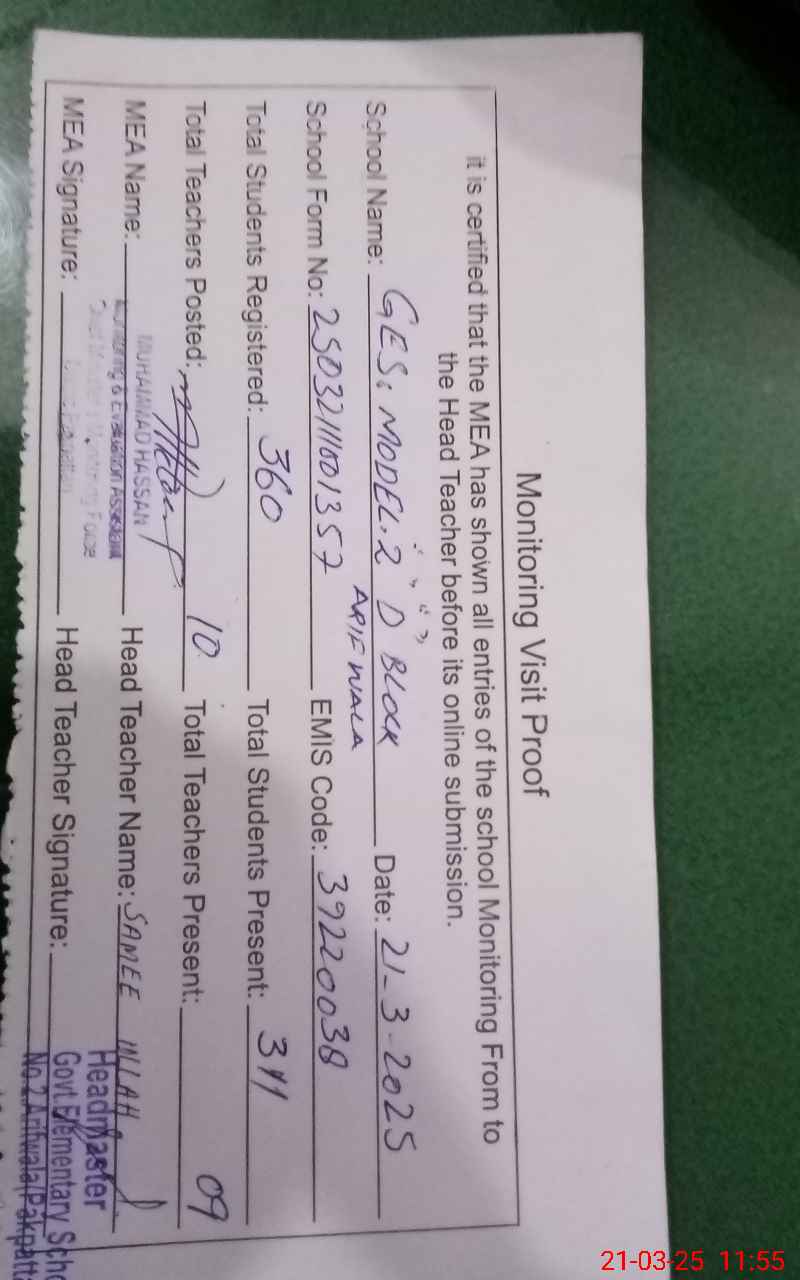 Monitoring Visit Proof
it is certified that the MEA has shown all entries of the school Monitoring From to
the Head Teacher before its online submission.
School Name: GES. MODEL. 2 " D " BLOCK Date: 21-3-2025
ARIFWALA
School Form No: 25032111001357 EMIS Code: 39220038
Total Students Registered: 360 Total Students Present: 311
Total Teachers Posted: 10 Total Teachers Present: 09
MEA Name: MUHAMMAD HASSAN Head Teacher Name: SAMEE ULLAH
Monitoring & Evaluation Assistant
MEA Signature: Head Teacher Signature:
Headmaster
Govt.Elementary Scho
No.2,Arifwala(Pakpatta
21-03-25 11:55